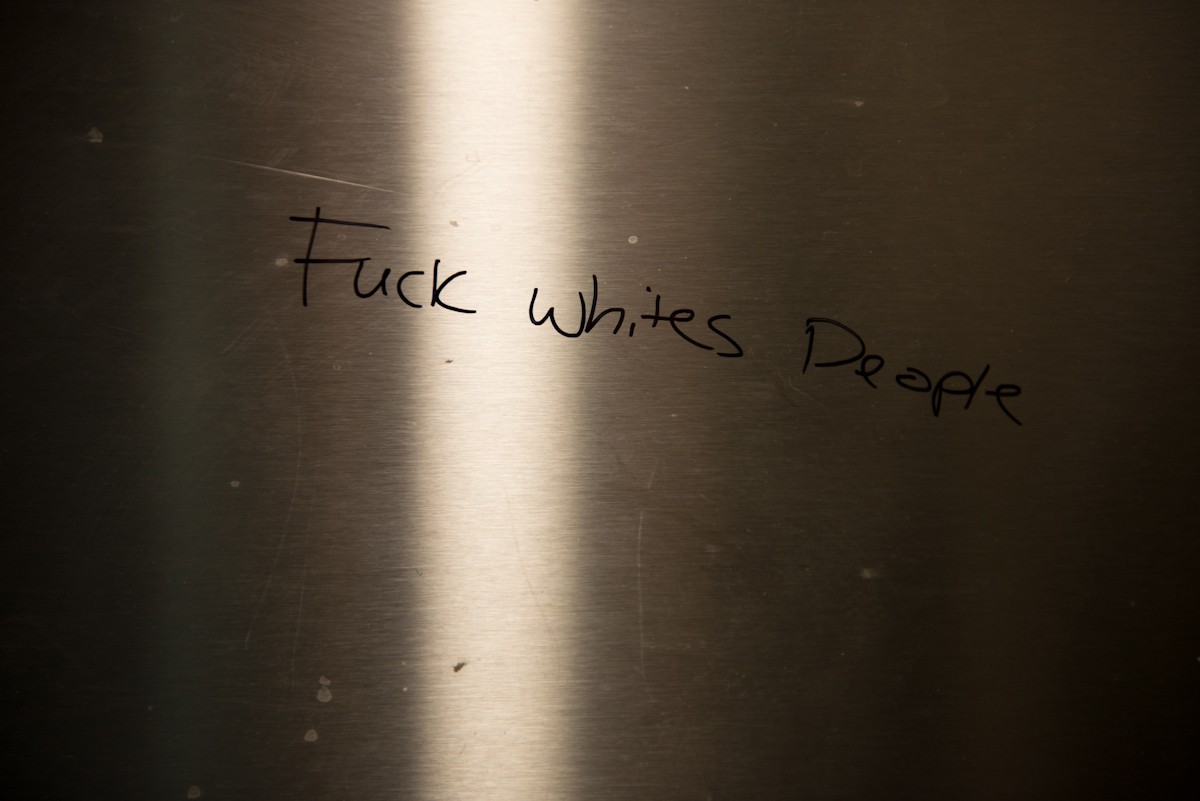 Fuck whites People